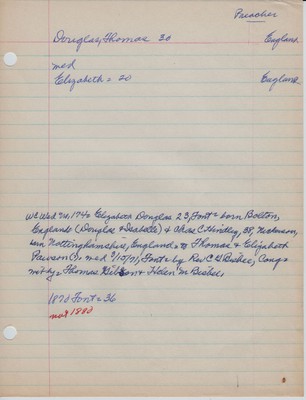 Preacher
Douglas, Thomas 30 England
med
Elizabeth = 20 England
WC Wed 1740 Elizabeth Douglas 23, Font = born Bolton,
England (Douglas & Isabella) & Chas C Hindley, 38,
born Nottinghamshire, England = Thomas & Elizabeth
med 9/15/71, Font = by Rev C G Bisbee, Congo
wit by Thomas Gibson & Helen M Bisbee
1870 Font = 36
not 1880